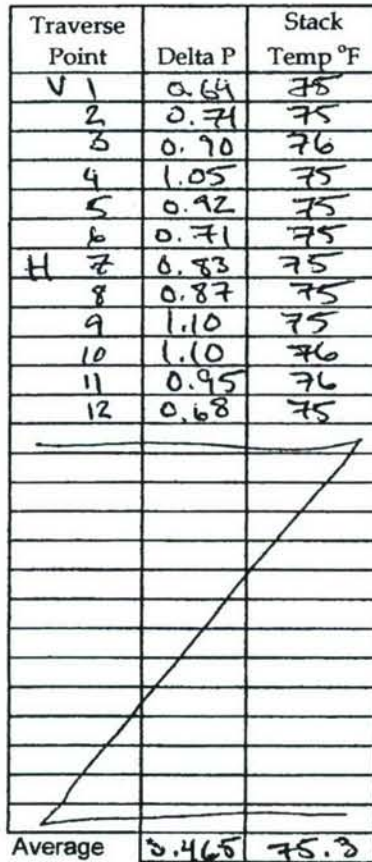 Traverse Point Delta P Stack Temp °F
V 1 0.64 75
2 0.71 75
3 0.90 76
4 1.05 75
5 0.92 75
6 0.71 75
H 7 0.83 75
8 0.87 75
9 1.10 75
10 1.10 76
11 0.95 76
12 0.68 75
Average 3.465 75.3